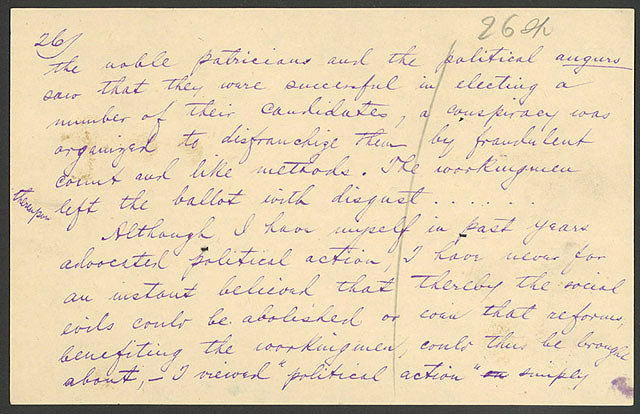 26/
26 sh
the noble patricians and the political augurs
saw that they were successful in electing a
number of their candidates, a conspiracy was
organized to disfranchize them by fraudulent
count and like methods. The workingmen
thereupon left the ballot with disgust . . . . . . .
Although I have myself in past years
advocated political action, I have never for
an instant believed that thereby the social
evils could be abolished or even that reforms,
benefiting the workingmen, could thus be brought
about, – I viewed "political action" simply